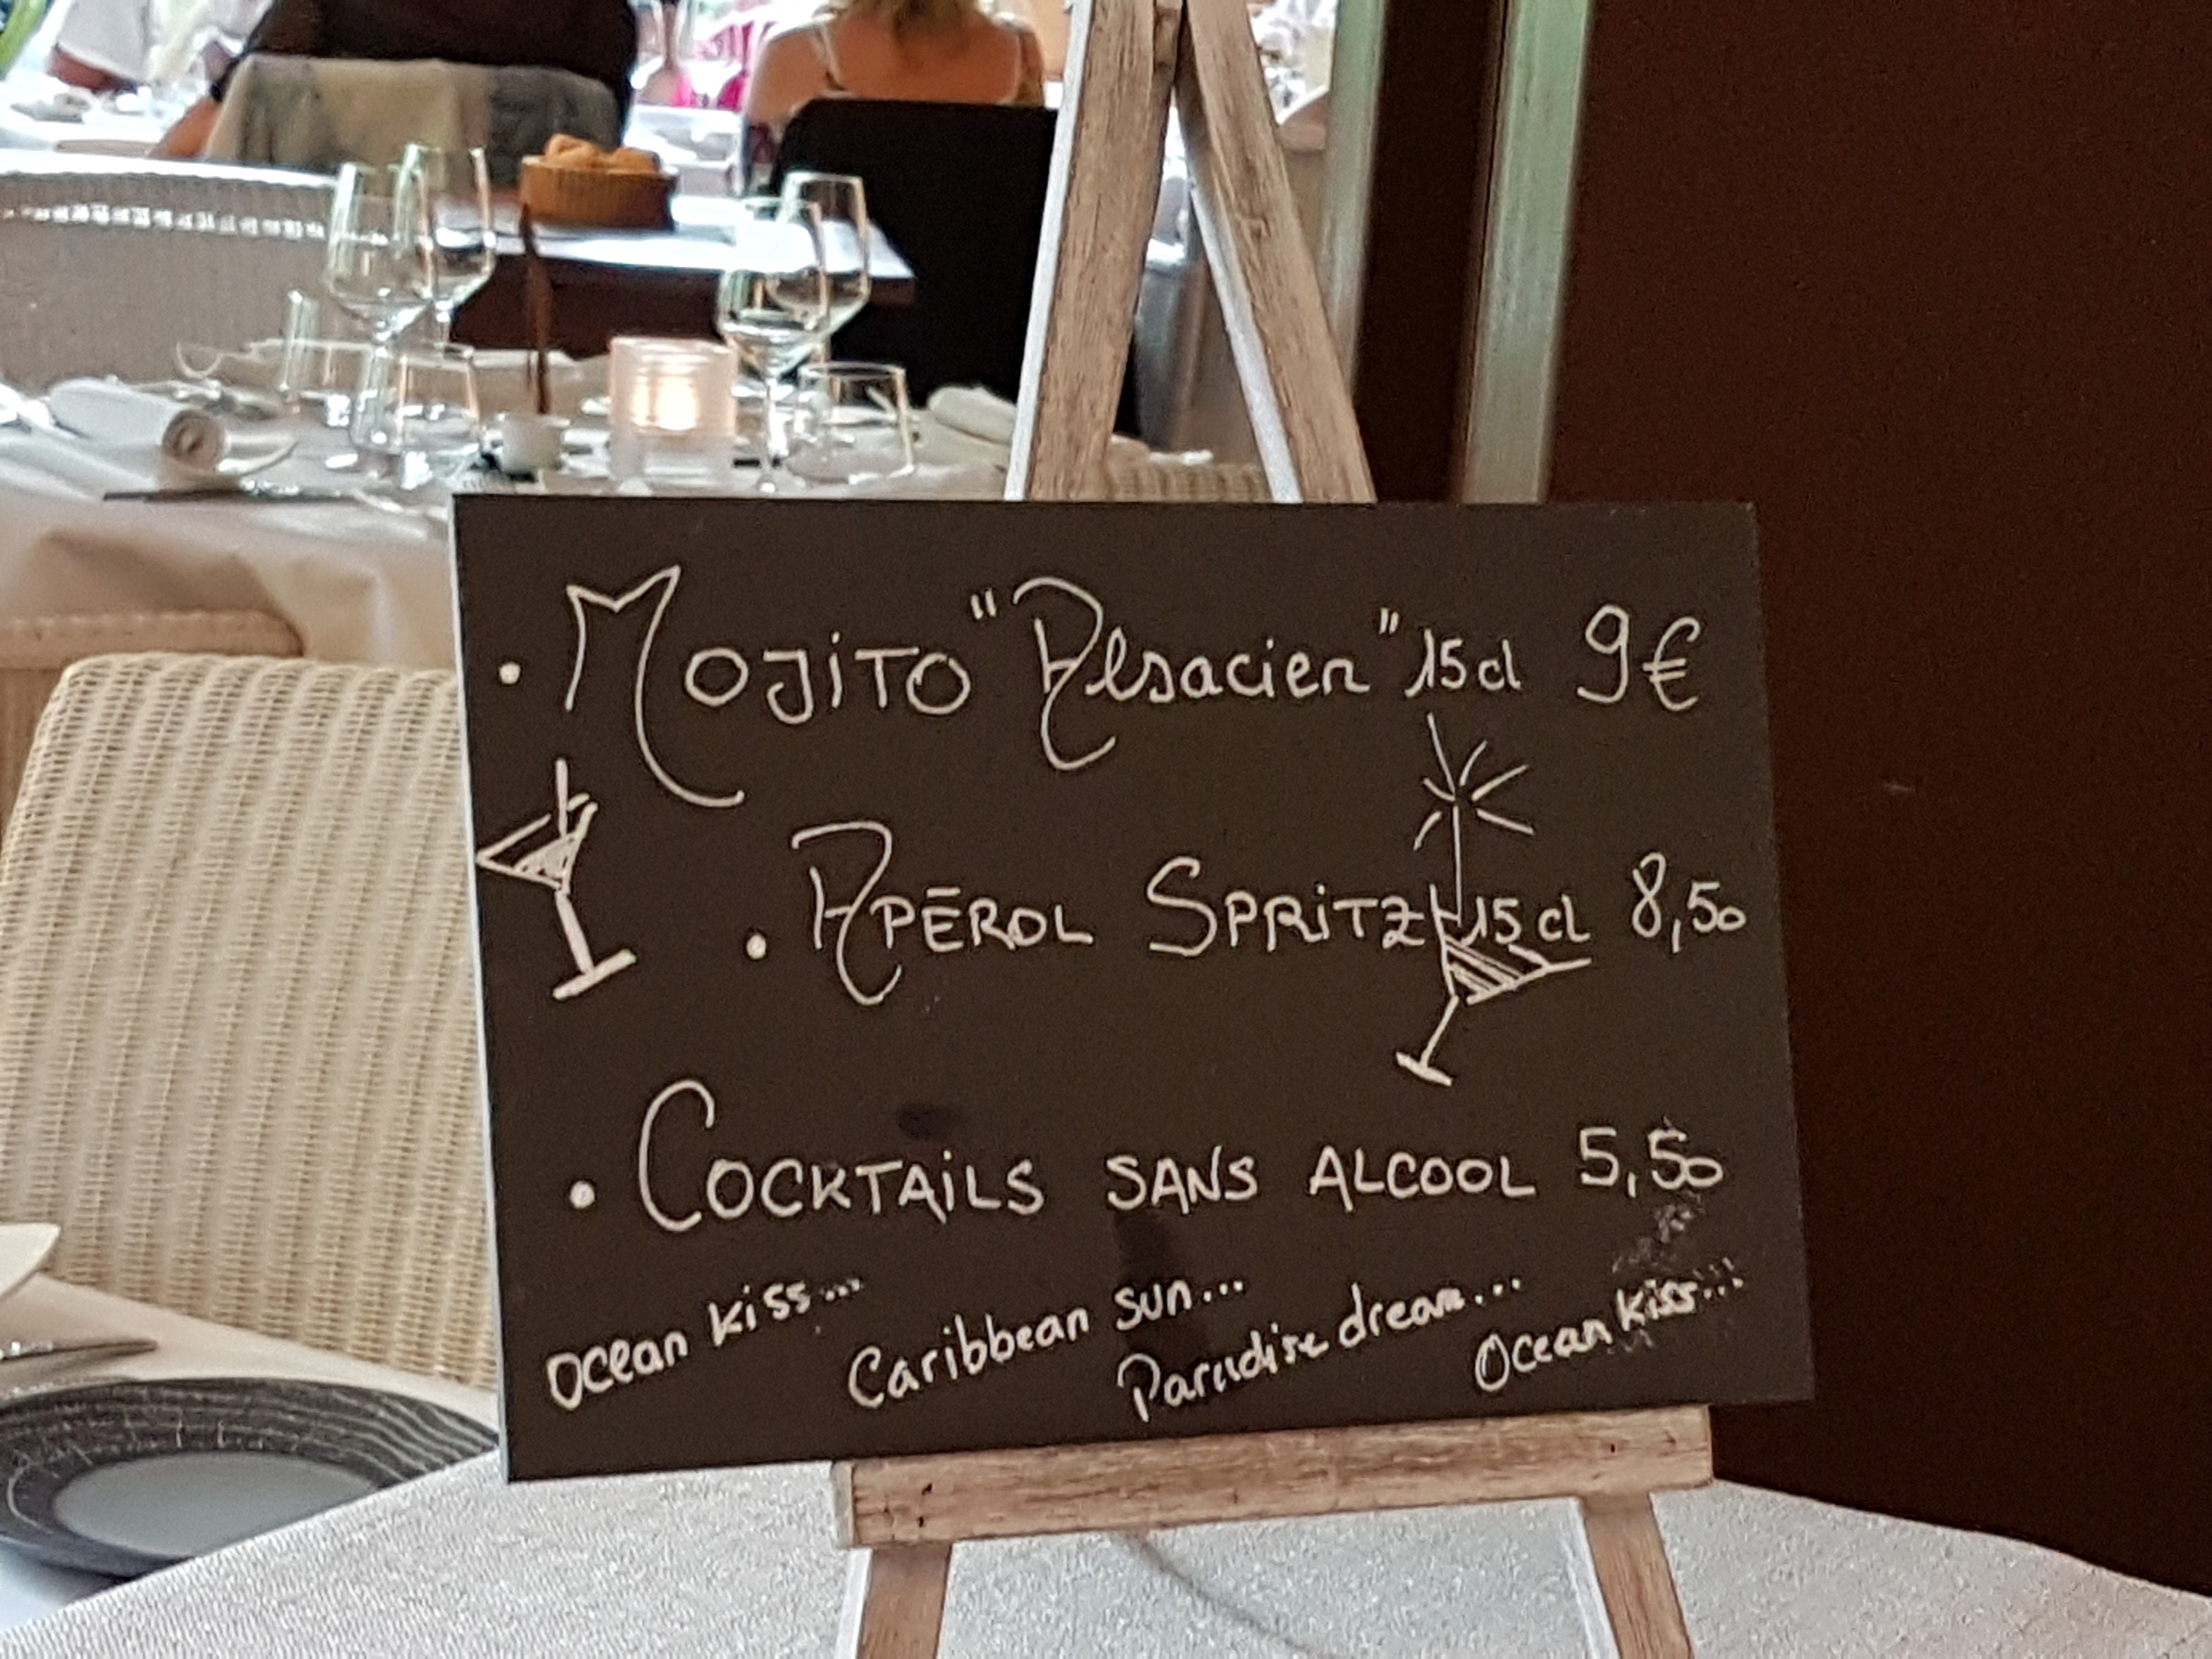 • Mojito "Alsacien" 15cl 9€
• APÉROL SPRITZ 15cl 8,50
• COCKTAILS SANS ALCOOL 5,50
Ocean kiss... Caribbean sun... Paradise dream... Ocean kiss...